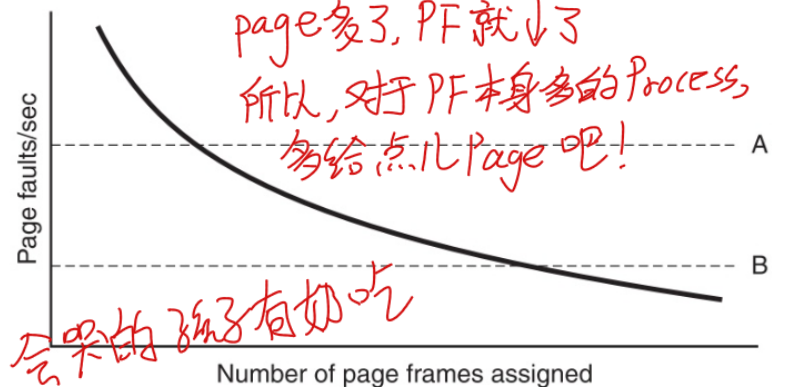 page多了,PF就↓了
所以,对于PF本身多的Process,
多给点儿Page吧!
A
B
Page faults/sec
会哭的孩子有奶吃
Number of page frames assigned